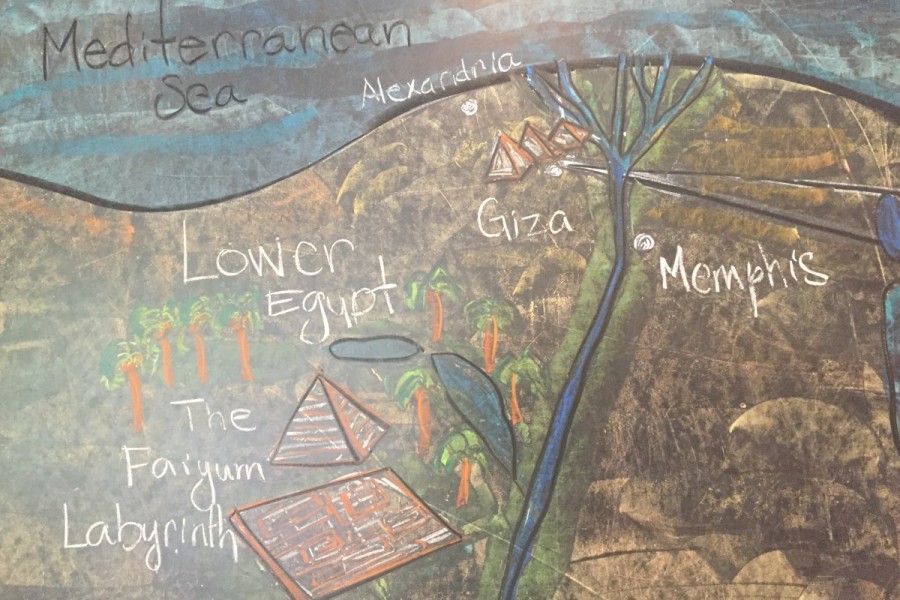 Mediterranean
Sea
Alexandria
Giza
Memphis
Lower
Egypt
The
Faiyum
Labyrinth